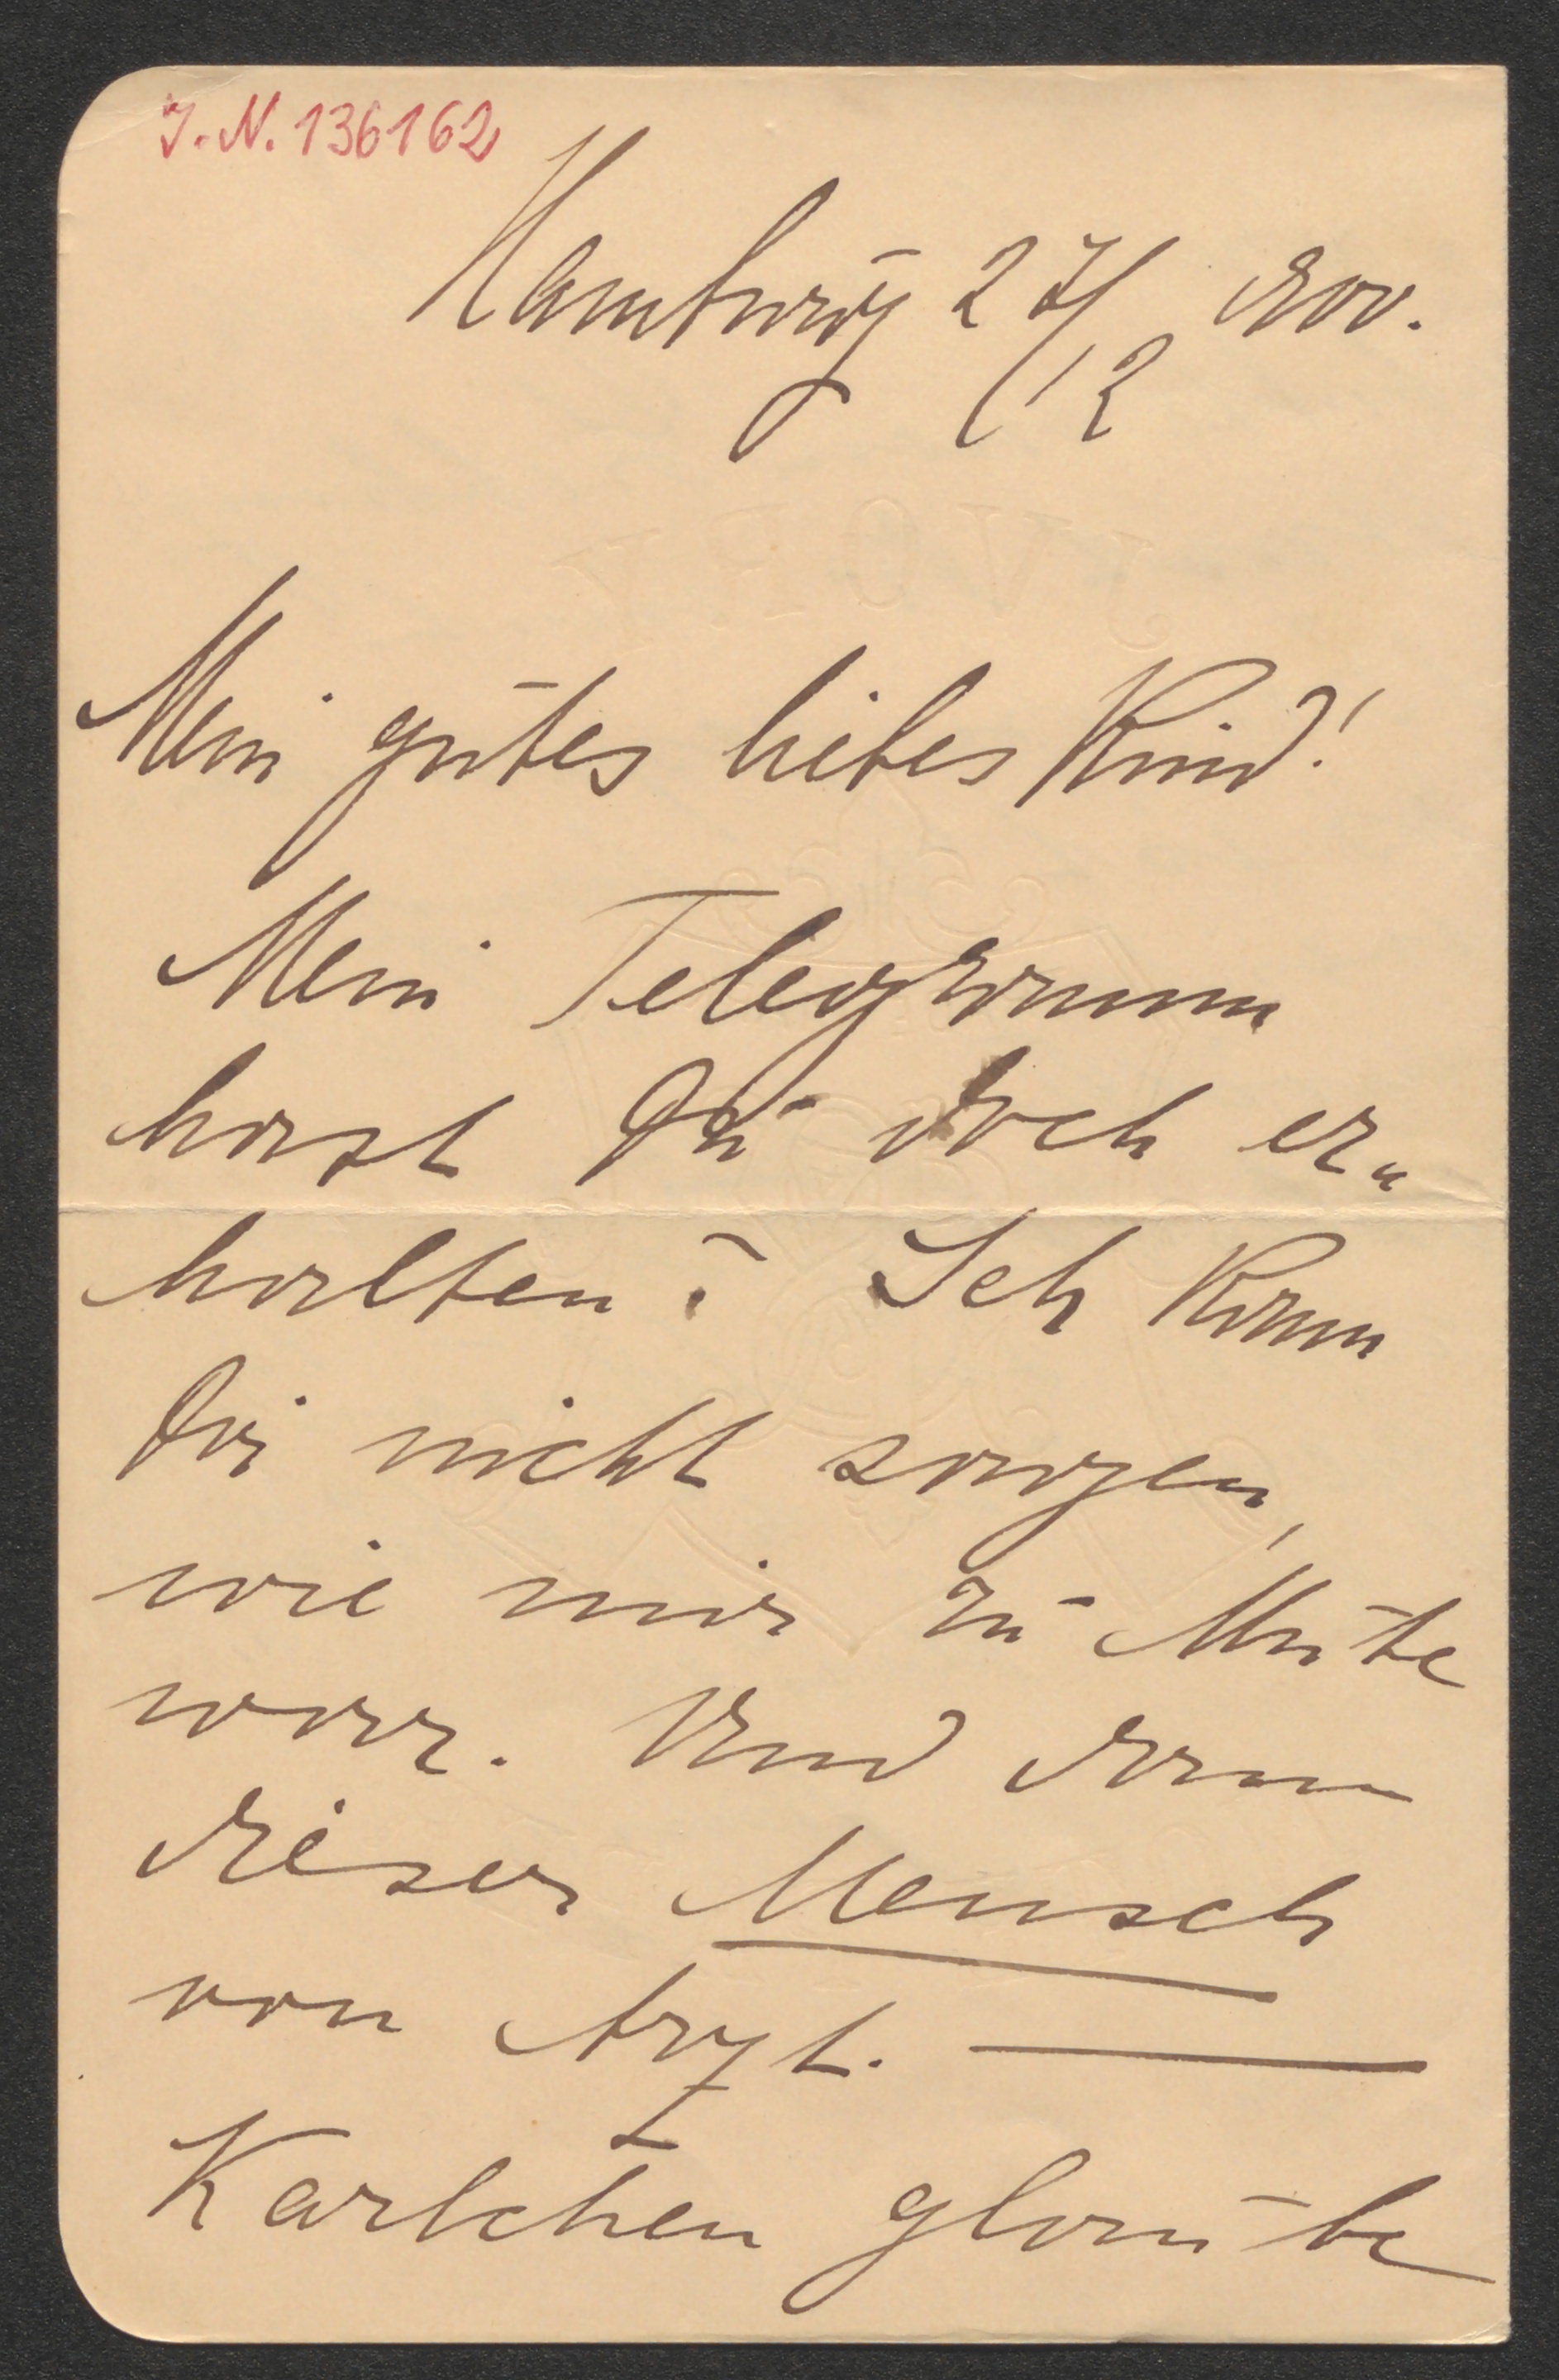 J.N. 136162
Hamburg 27/ Nov.
12
Mein gutes liebes Kind!
Mein Telegramm
hast Du doch er„
halten? Ich kann
Dir nicht sagen,
wie mir zu Mute
war. Und dann
dieser Mensch
von Arzt. —
Karlchen glaube